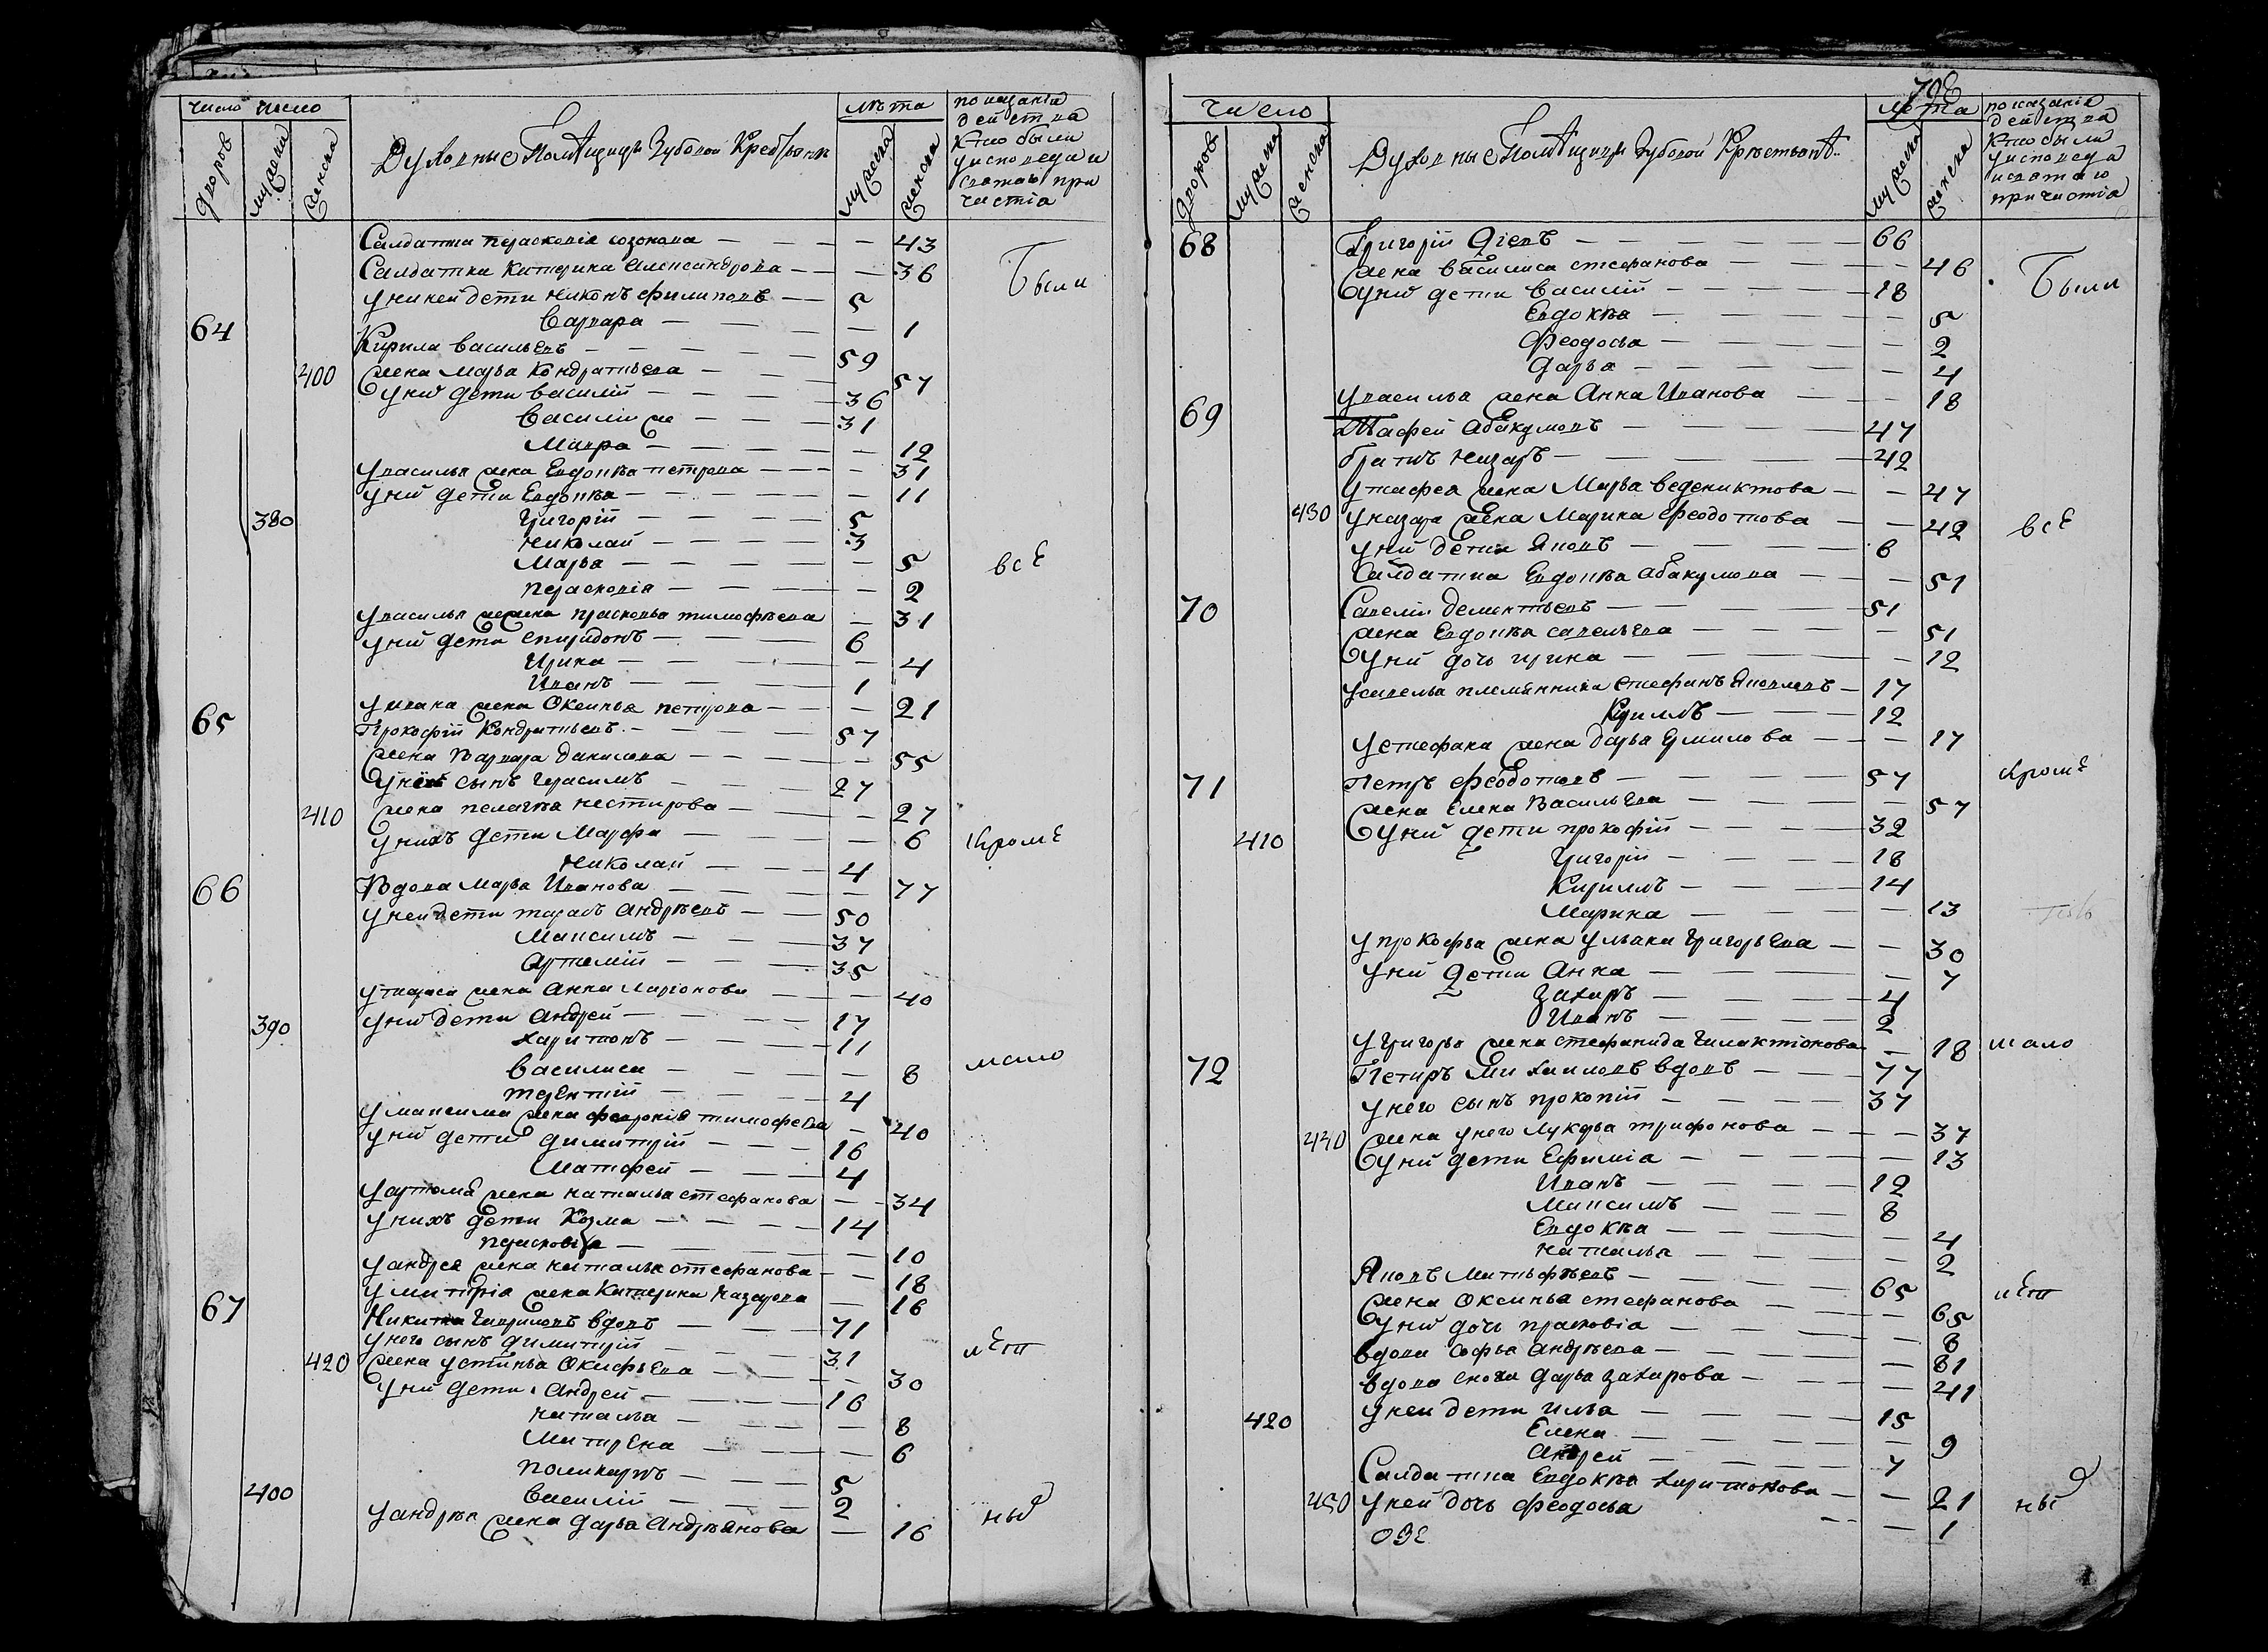 число число
дворов
мужеска
женска
Духовные Помѣщицы Зубовой Крестьяне
лѣта
мужеска
женска
показаніе
действа
кто были
у исповеди и
святаго при
частія
Салдатка Парасковія созонова — — — — 43
Салдатка Катерина Александрова — — — 36
у ней дети Никонъ филиповъ — — 5
Варвара — — — — 1
64 Кирила васильевъ — — — — 59
400 жена Марья Кондратьева — — — 57
у них дети василій — — — — 36
Василій же — — — 31
Мавра — — — — 12
у василья жена Евдокья петрова — — — 31
у них дети Евдокья — — — — — 11
380 Григорій — — — — 5
Николай — — — — 3
Марья — — — — — 5
Парасковія — — — — 2
у василья жена прасковья тимофѣева — 31
у них дети спиридонъ — — — 6
Ирина — — — — 4
Иванъ — — — — 1
у ивана жена Оксинья петрова — — — 21
65 Прокофій Кондратьевъ — — — — 57
жена Варвара данилова — — — — 55
у них сынъ Герасимъ — — — 27
410 жена пелагѣя нестирова — — — 27
у нихъ дети Марфа — — — — 6
Николай — — — 4
66 Вдова Марья Иванова — — — — 77
у ней дети тарасъ андрѣевъ — — 50
Максимъ — — — 37
Артемій — — — 35
у тараса жена Анна Ларіонова — — — 40
390 у них дети Андрей — — — — 17
Харитонъ — — — — 11
Василиса — — — — 8
терентій — — — — 4
у максима жена феѳронія тимофева — 40
у них дети димитрій — — — 16
Матфей — — — 4
у артюма жена наталья стефанова — — 34
у нихъ дети Козма — — — — 14
парасковья — — — — 10
у андрея жена наталья стефанова — — 18
у митрія жена Катерина Назарова — 16
67 Никита Гавриловъ вдовъ — — — 71
у него сынъ димитрій — — — — 31
420 жена устинья Окифьева — — — — 30
у них дети Андрей — — — — 16
Наталья — — — — 8
Матрена — — — — 6
поликарпъ — — — 5
400 Василій — — — 2
у андрѣя жена дарья Андрѣянова — 16
Были
всѣ
Кромѣ
мало
лѣт
ных
число
дворов
мужеска
женска
Духовные Помѣщицы Зубовой Крѣстьянѣ
лѣта
мужеска
женска
показаніе
действа
кто были
у исповеди
и святаго
причастія
68 Григорій Фіевъ — — — — — — 66
жена василиса стефанова — — — — 46
у них дети Василій — — — — — 18
Евдокѣя — — — — 5
Феодосья — — — — 2
Дарья — — — — 4
у василья жена Анна Иванова — — — 18
69 Тимофей Абакумовъ — — — — — 47
братъ Назаръ — — — — — 42
у тимофея жена Марья ведениктова — — 47
430 у назара жена Марина Феодотова — — 42
у них дети Яковъ — — — — 6
Салдатка Евдокья абакумова — — — 51
70 Савелій дементьевъ — — — — 51
жена Евдокья савельева — — — — 51
у них дочь ирина — — — — — 12
у савелья племянника стефанъ Яковлевъ — 17
Кирилъ — — — 12
у стефана жена дарья Ермилова — — — 17
71 Петръ Феодотовъ — — — — — 57
жена Елена Васильева — — — — 57
410 у них дети прокофій — — — — 32
Григорій — — — — 18
Кирилъ — — — — 14
Марина — — — — 13
у прокофья жена ульяна Григорьева — — 30
у них дети Анна — — — — — 7
Захаръ — — — — 4
Иванъ — — — — 2
у Григорья жена стефанида Галактіонова — 18
72 Петръ Михаиловъ вдовъ — — — 77
у него сынъ прокопій — — — — 37
440 жена у него Лукерья трифонова — — — 37
у них дети Ефимія — — — — — 13
Иванъ — — — — 12
Максимъ — — — — 8
Евдокѣя — — — — 4
Наталья — — — — 2
Яковъ Матьфѣевъ — — — — — 65
жена Оксинья стефанова — — — — 65
у них дочь прасковіа — — — — — 8
вдова софья Андрѣева — — — — — 81
вдова сноха дарья захарова — — — — 41
420 у ней дети илья — — — — — 15
Елена — — — — — 9
Андрей — — — — 7
Салдатка Евдокѣя харитонова — — — 21
450 у ней дочь Феодосья — — — 1
Были
всѣ
Кромѣ
мало
лѣт
ных